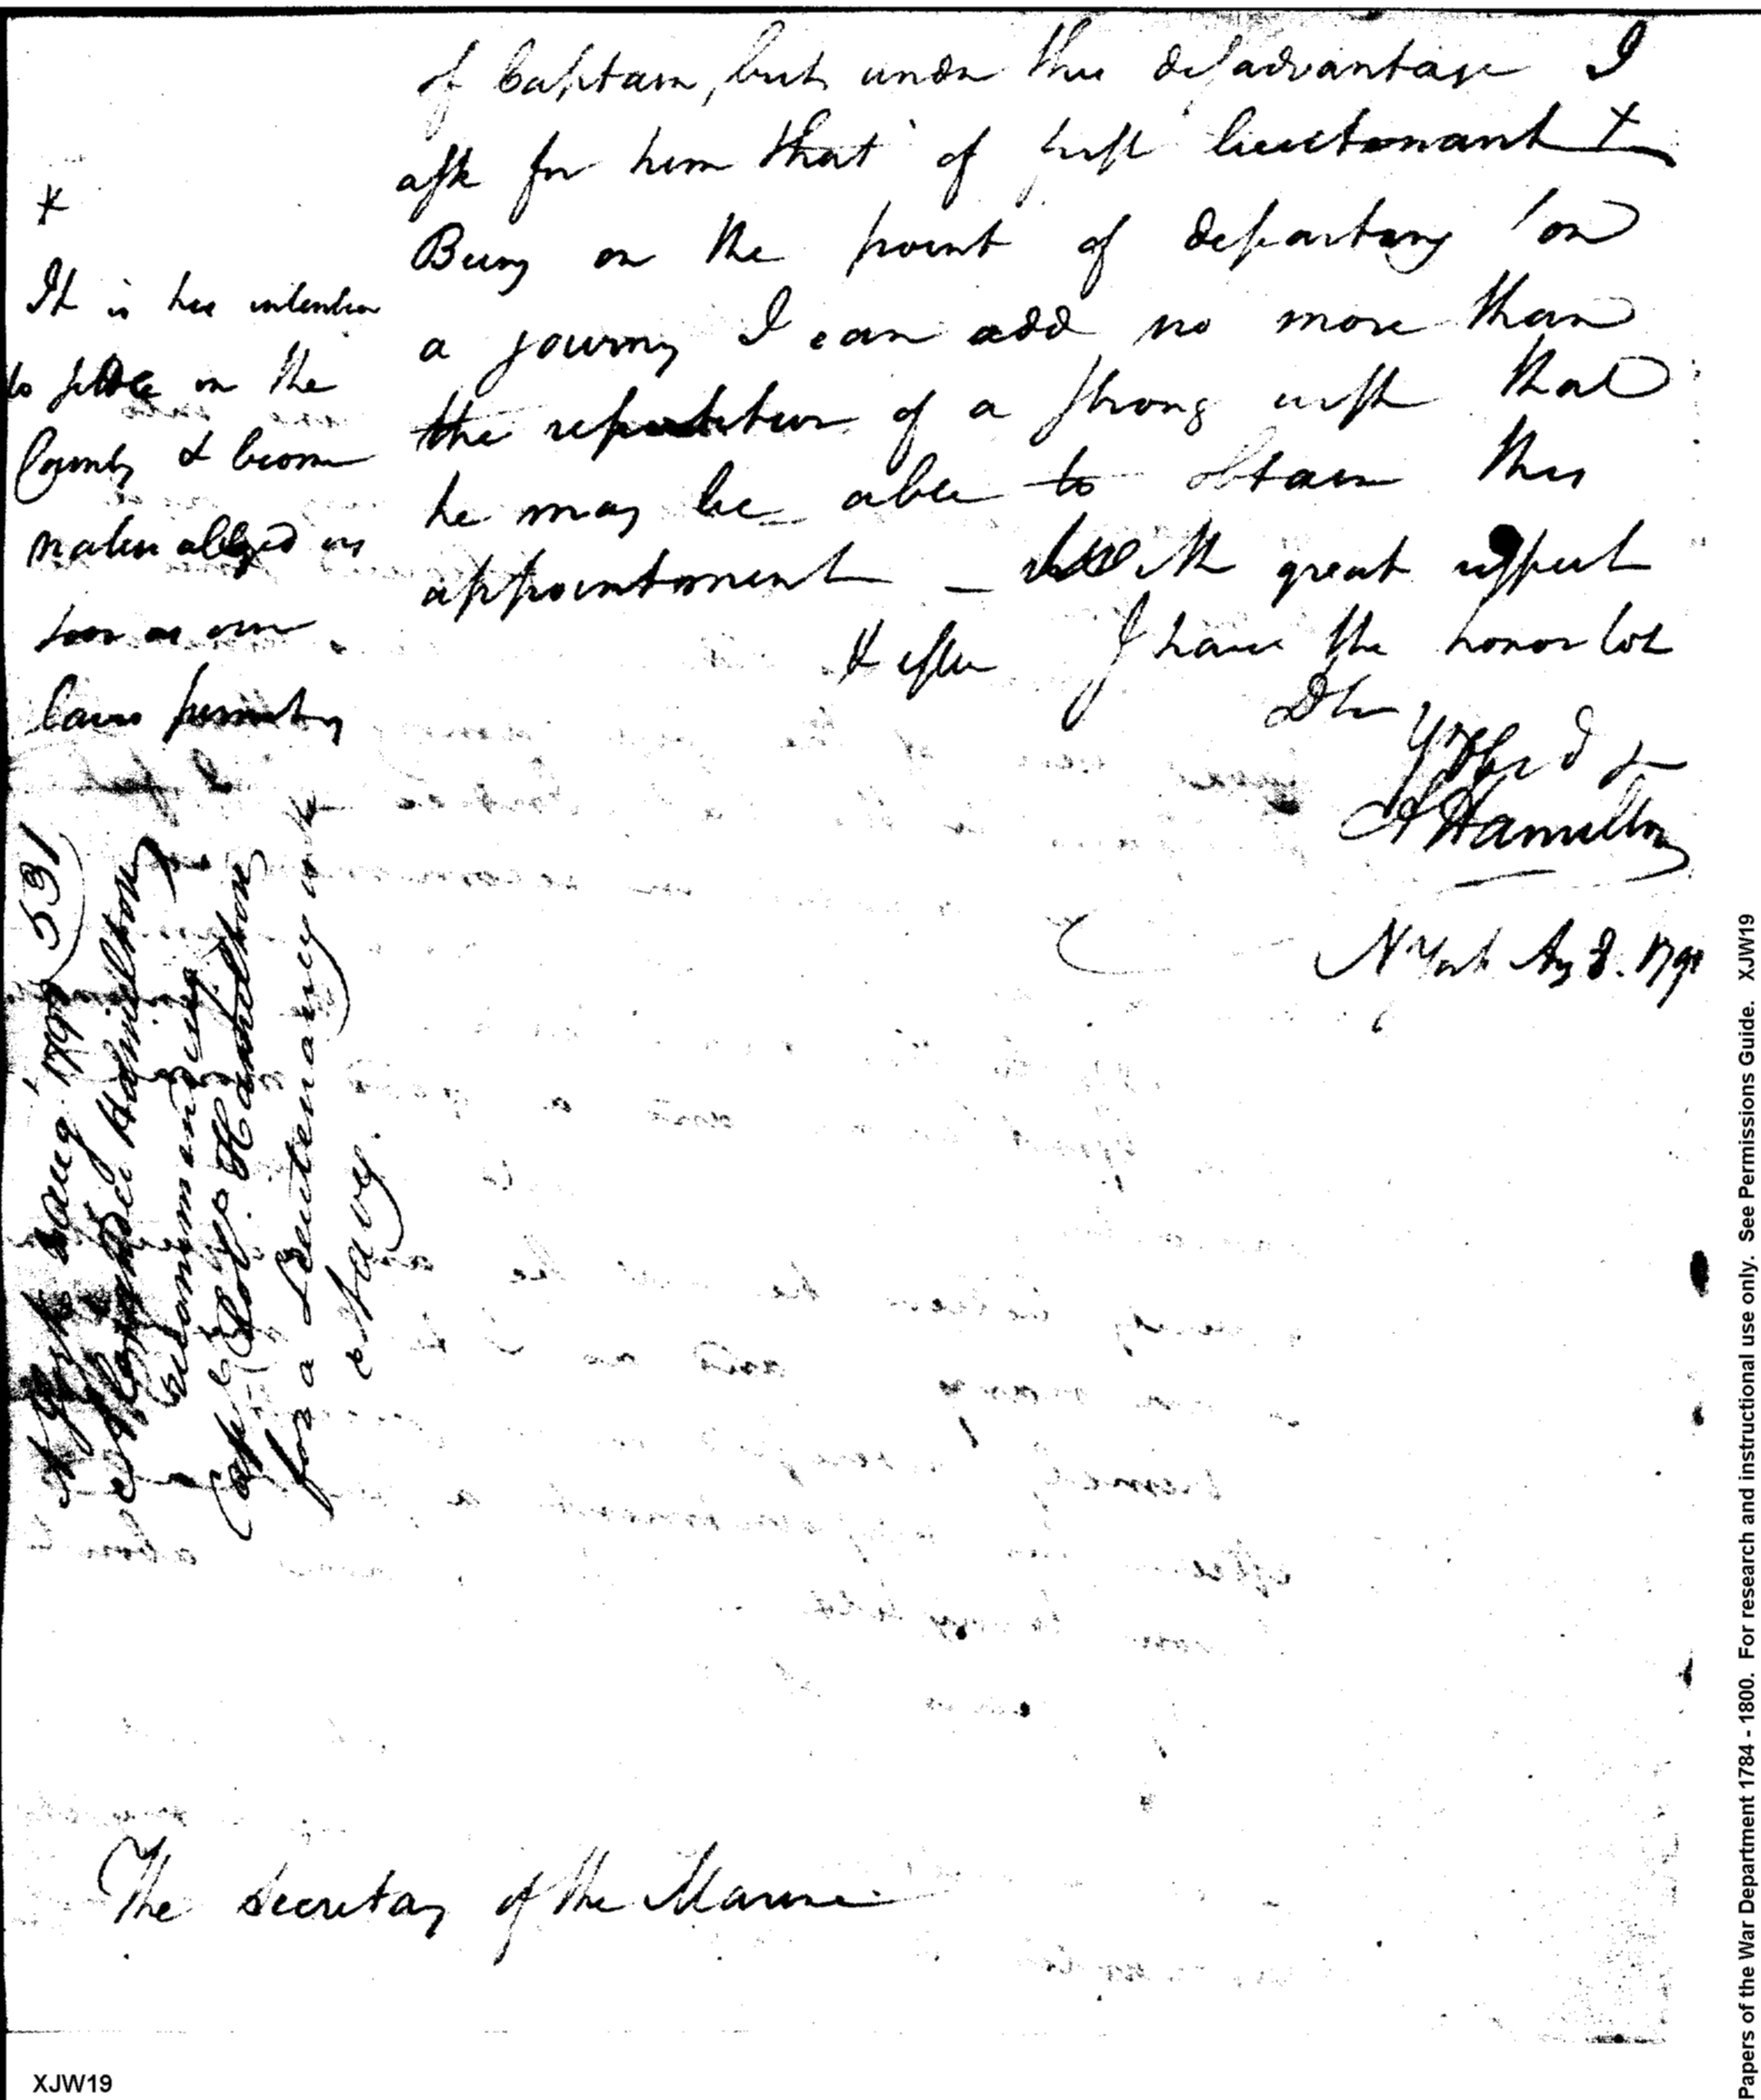 of Captain, but under this disadvantage I
ask for him that of first lieutenant +
Being on the point of departing on
a journey I can add no more than
the repetition of a strong wish that
he may be able to obtain this
appointment — With great respect
& esteem I have the honor to be
D Sir
Yr Obed
A Hamilton
N York Aug 8. 179
*
It is his intention
to settle in the
Country & become
naturalized as
soon as our
laws permit
N York 8 Aug. 179 531
Alexander Hamilton
recommending
Capt Robt. Hamilton
for a Lieutenancy in the
Navy.
The Secretary of the Marine
XJW19
Papers of the War Department 1784 - 1800. For research and instructional use only. See Permissions Guide. XJW19